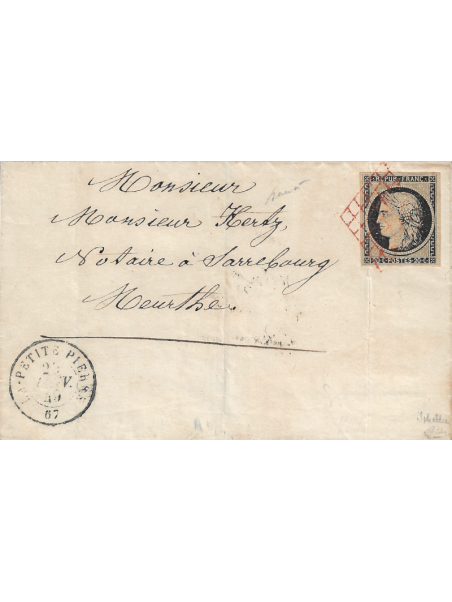 Monsieur
Monsieur Hertz
Notaire à Sarrebourg
Meurthe
REPUB. FRANC.
20 C POSTES 20 C
LA-PETITE PIERRE
67